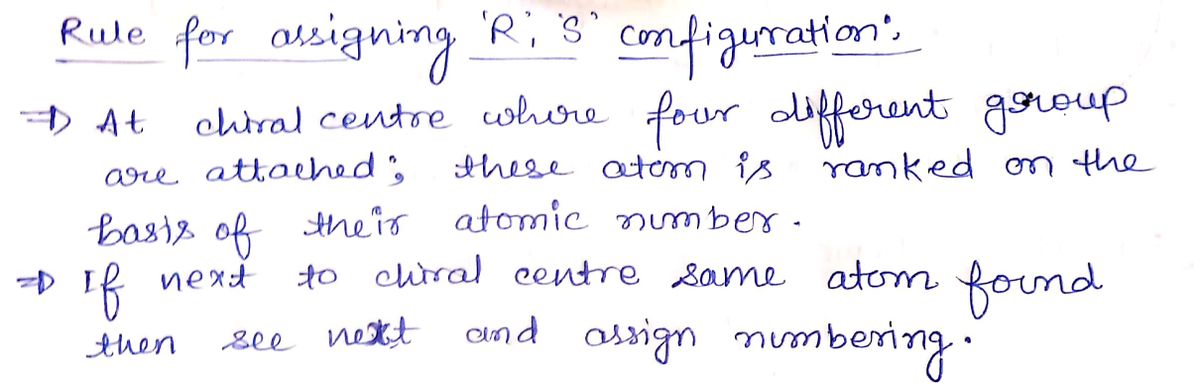 Rule for assigning 'R', 'S' configuration:
⇒ At chiral centre where four different group
are attached; these atom is ranked on the
basis of their atomic number.
⇒ If next to chiral centre same atom found
then see next and assign numbering.